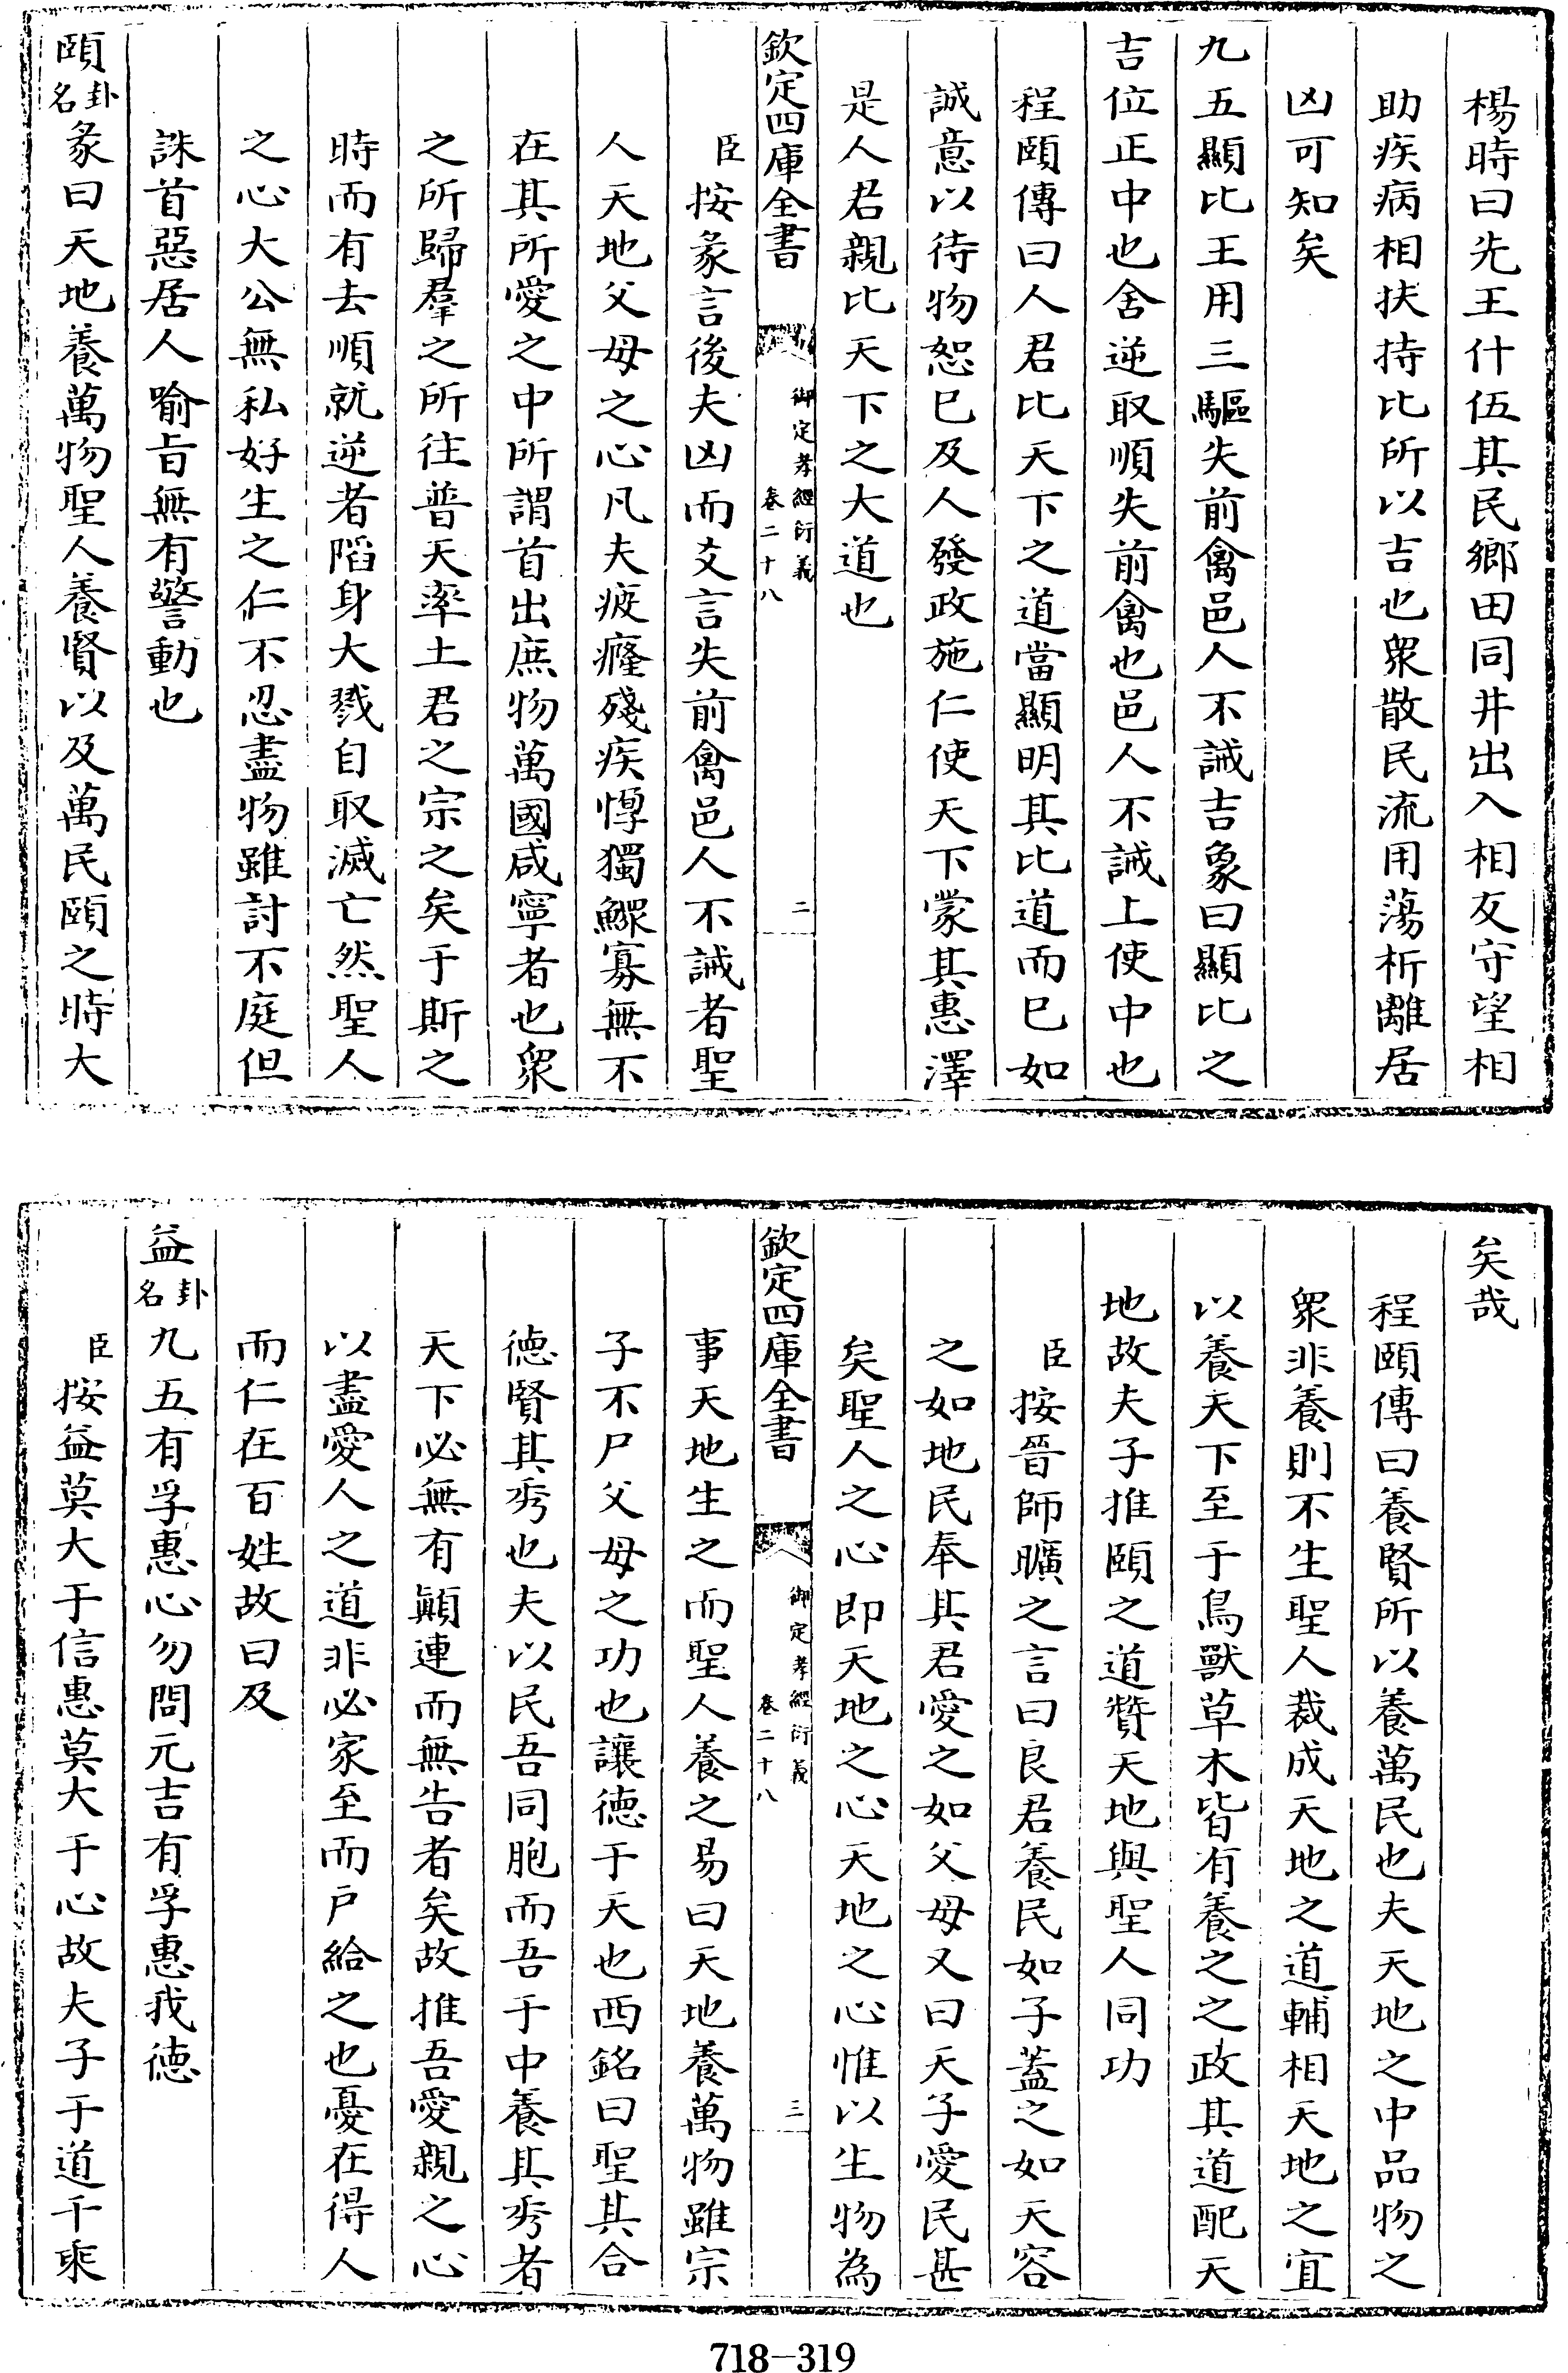 楊時曰先王什伍其民鄉田同井出入相友守望相
助疾病相扶持比所以吉也衆散民流用蕩析離居
凶可知矣
九五顯比王用三驅失前禽邑人不誡吉象曰顯比之
吉位正中也舍逆取順失前禽也邑人不誡上使中也
程頤傳曰人君比天下之道當顯明其比道而已如
誠意以待物恕已及人發政施仁使天下蒙其惠澤
是人君親比天下之大道也
欽定四庫全書
御定孝經衍義
卷二十八
二
臣按彖言後夫凶而爻言失前禽邑人不誡者聖
人天地父母之心凡夫疲癃殘疾惸獨鰥寡無不
在其所愛之中所謂首出庶物萬國咸寧者也衆
之所歸羣之所往普天率土君之宗之矣于斯之
時而有去順就逆者陷身大戮自取滅亡然聖人
之心大公無私好生之仁不忍盡物雖討不庭但
誅首惡居人喻旨無有警動也
頤卦名彖曰天地養萬物聖人養賢以及萬民頤之時大
矣哉
程頤傳曰養賢所以養萬民也夫天地之中品物之
衆非養則不生聖人裁成天地之道輔相天地之宜
以養天下至于鳥獸草木皆有養之之政其道配天
地故夫子推頤之道贊天地與聖人同功
臣按晉師曠之言曰良君養民如子蓋之如天容
之如地民奉其君愛之如父母又曰天子愛民甚
矣聖人之心即天地之心天地之心惟以生物為
欽定四庫全書
御定孝經衍義
卷二十八
三
事天地生之而聖人養之易曰天地養萬物雖宗
子不尸父母之功也讓德于天也西銘曰聖其合
德賢其秀也夫以民吾同胞而吾于中養其秀者
天下必無有顚連而無告者矣故推吾愛親之心
以盡愛人之道非必家至而戶給之也憂在得人
而仁在百姓故曰及
益卦名九五有孚惠心勿問元吉有孚惠我德
臣按益莫大于信惠莫大于心故夫子于道千乘
718-319